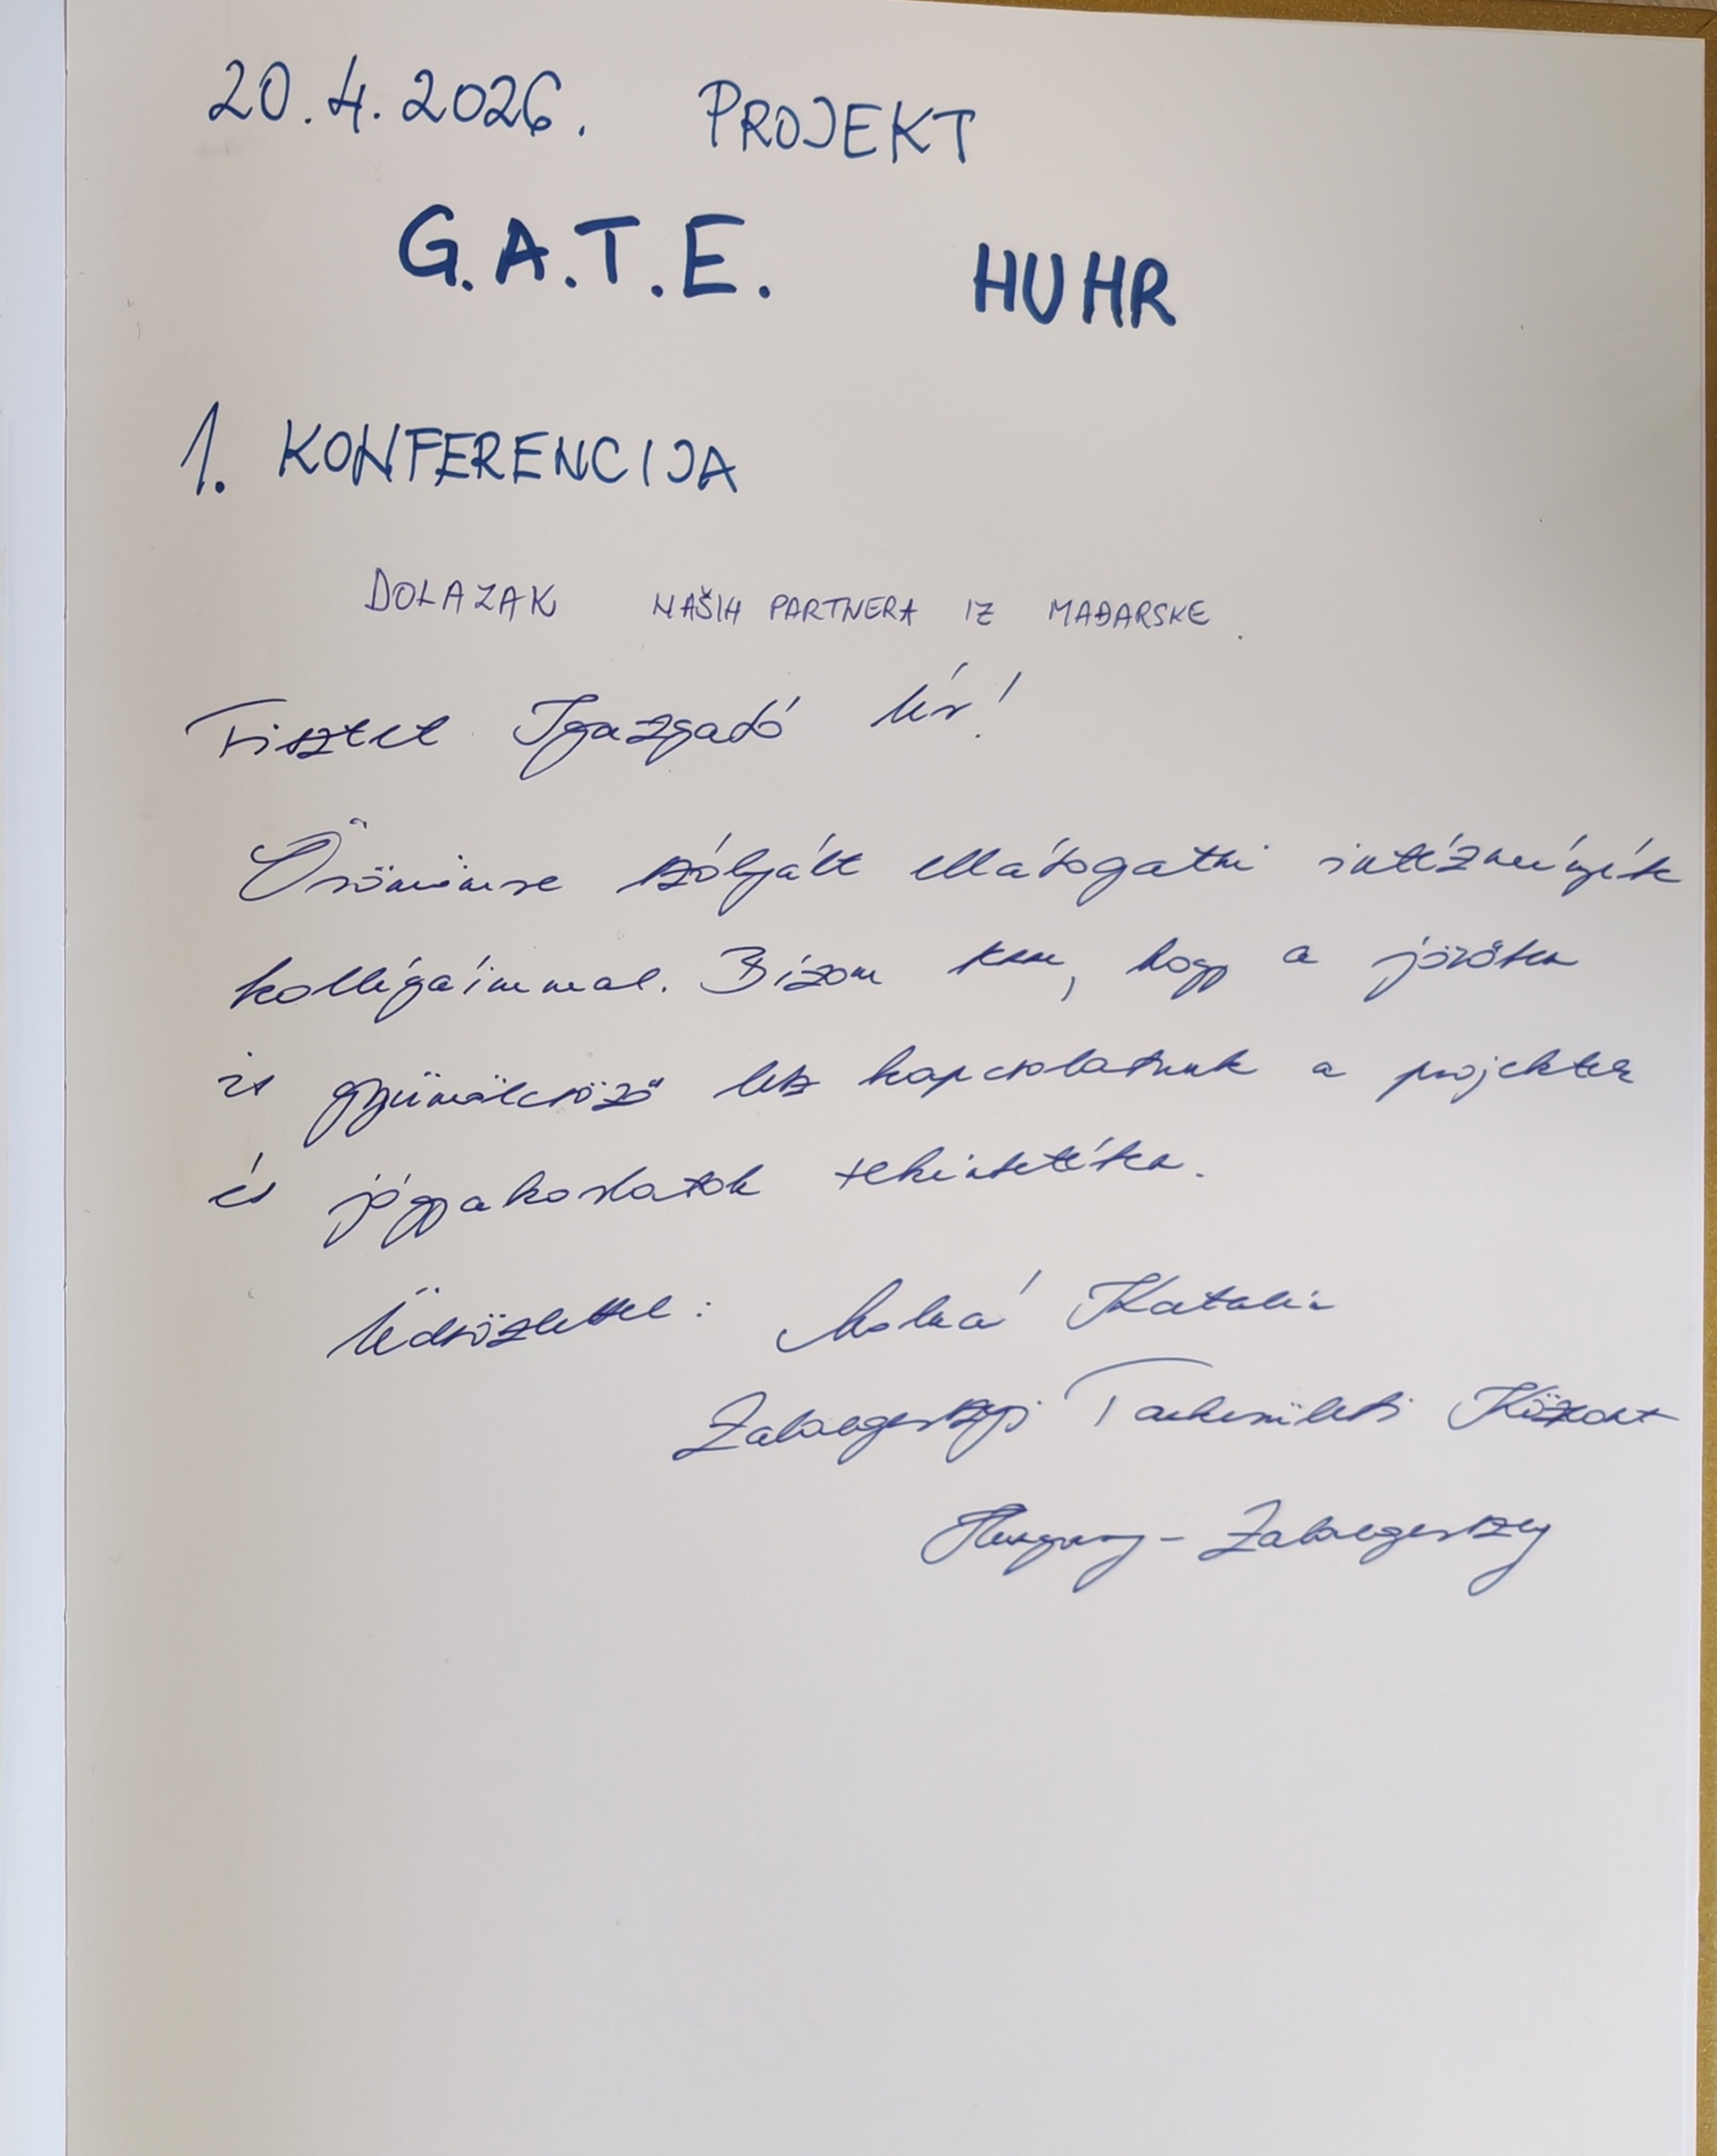 20.4.2026. PROJEKT
G.A.T.E. HUHR
1. KONFERENCIJA
DOLAZAK NAŠIH PARTNERA IZ MAĐARSKE.
Tisztelt Igazgató Úr!
Örömömre szólgált ellátogatni intézményék
kollégáimmal. Bízom, hogy a jövőben
is gyümölcsöző lesz kapcsolatunk a projektek
és jógyakorlatok tekintetében.
Üdvözlettel: Katalin
Zalaegerszegi Tankerületi Központ
Hungary - Zalaegerszeg